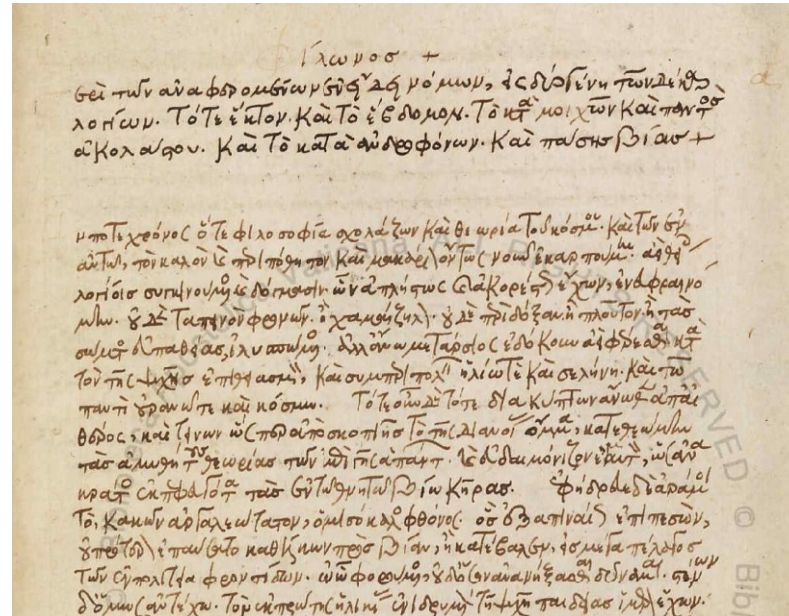 Φίλωνος +
περὶ τῶν ἀναφερομένων ἐν εἴδει νόμων, εἰς δύο γένη τῶν δέκα
λογίων. Τό τε ἕκτον. Καὶ τὸ ἕβδομον. Τὸ κατὰ μοιχῶν καὶ παντὸς
ἀκολάστου. Καὶ τὸ κατὰ ἀνδροφόνων. Καὶ πάσης βίας +
ν ποτε χρόνος ὅτε φιλοσοφία σχολάζων καὶ θεωρία τοῦ κόσμου. καὶ τῶν ἐν
αὐτῶ, τὸν καλὸν καὶ περιπόθητον καὶ μακάριον ὄντως νοῦν ἐκαρπούμην.
λογίοις συγγινόμενος καὶ δόγμασιν ὧν ἀπλήστως καὶ ἀκορέστως ἔχων, ἐνευφραινό
μην. οὐδὲν ταπεινὸν φρονῶν. ἢ χαμαίζηλον. οὐδὲ περὶ δόξαν ἢ πλοῦτον ἢ τὰς
σώματος εὐπαθείας, ἰλυσπώμενος. ἀλλ' ἄνω μετάρσιος ἐδόκουν ἀεὶ φέρεσθαι κατὰ
τῆς ψυχῆς ἐπιθειασμὸν, καὶ συμπεριπολεῖν ἡλίω τὲ καὶ σελήνη. καὶ τῶ
παντὶ οὐρανῶ τε καὶ κόσμω. τότε τότε διακύπτων ἄνωθεν ἀπ' αἰ
θέρος, καὶ τείνων ὥσπερ ἀπὸ σκοπιῆς τὸ τῆς διανοίας ὄμμα, κατεθεώμην
τὰς ἀμυθήτους θεωρίας τῶν ἐπὶ γῆς ἁπάντων. καὶ εὐδαιμόνιζον ἐμαυτὸν, ὡς ἀνὰ
κράτος ἐκπεφευγότα τὰς ἐν τῶ θνητῶ βίω κῆρας. ἐφήδρευε δὲ ἄρα μοὶ
τὸ, κακῶν ἀργαλεώτατον, ὁ μισόκαλος φθόνος. ὃς ἐξαπιναίως ἐπιπεσὼν,
οὐ πρότερον ἐπαύσατο καθέλκων πρὸς βίαν, ἢ εἰς μέγα πέλαγος
τῶν ἐν πολιτεία φροντίδων. ἐν ὧ φορούμενος, οὐδ' ὅσον ἀνανήξασθαι δύναμαι. στένων
δ' ὅμως ἀντέχω. τὸν ἐκ πρώτης ἡλικίας ἐνιδρυμένον τῆ ψυχῆ παιδείας ἵμερον ἔχων.